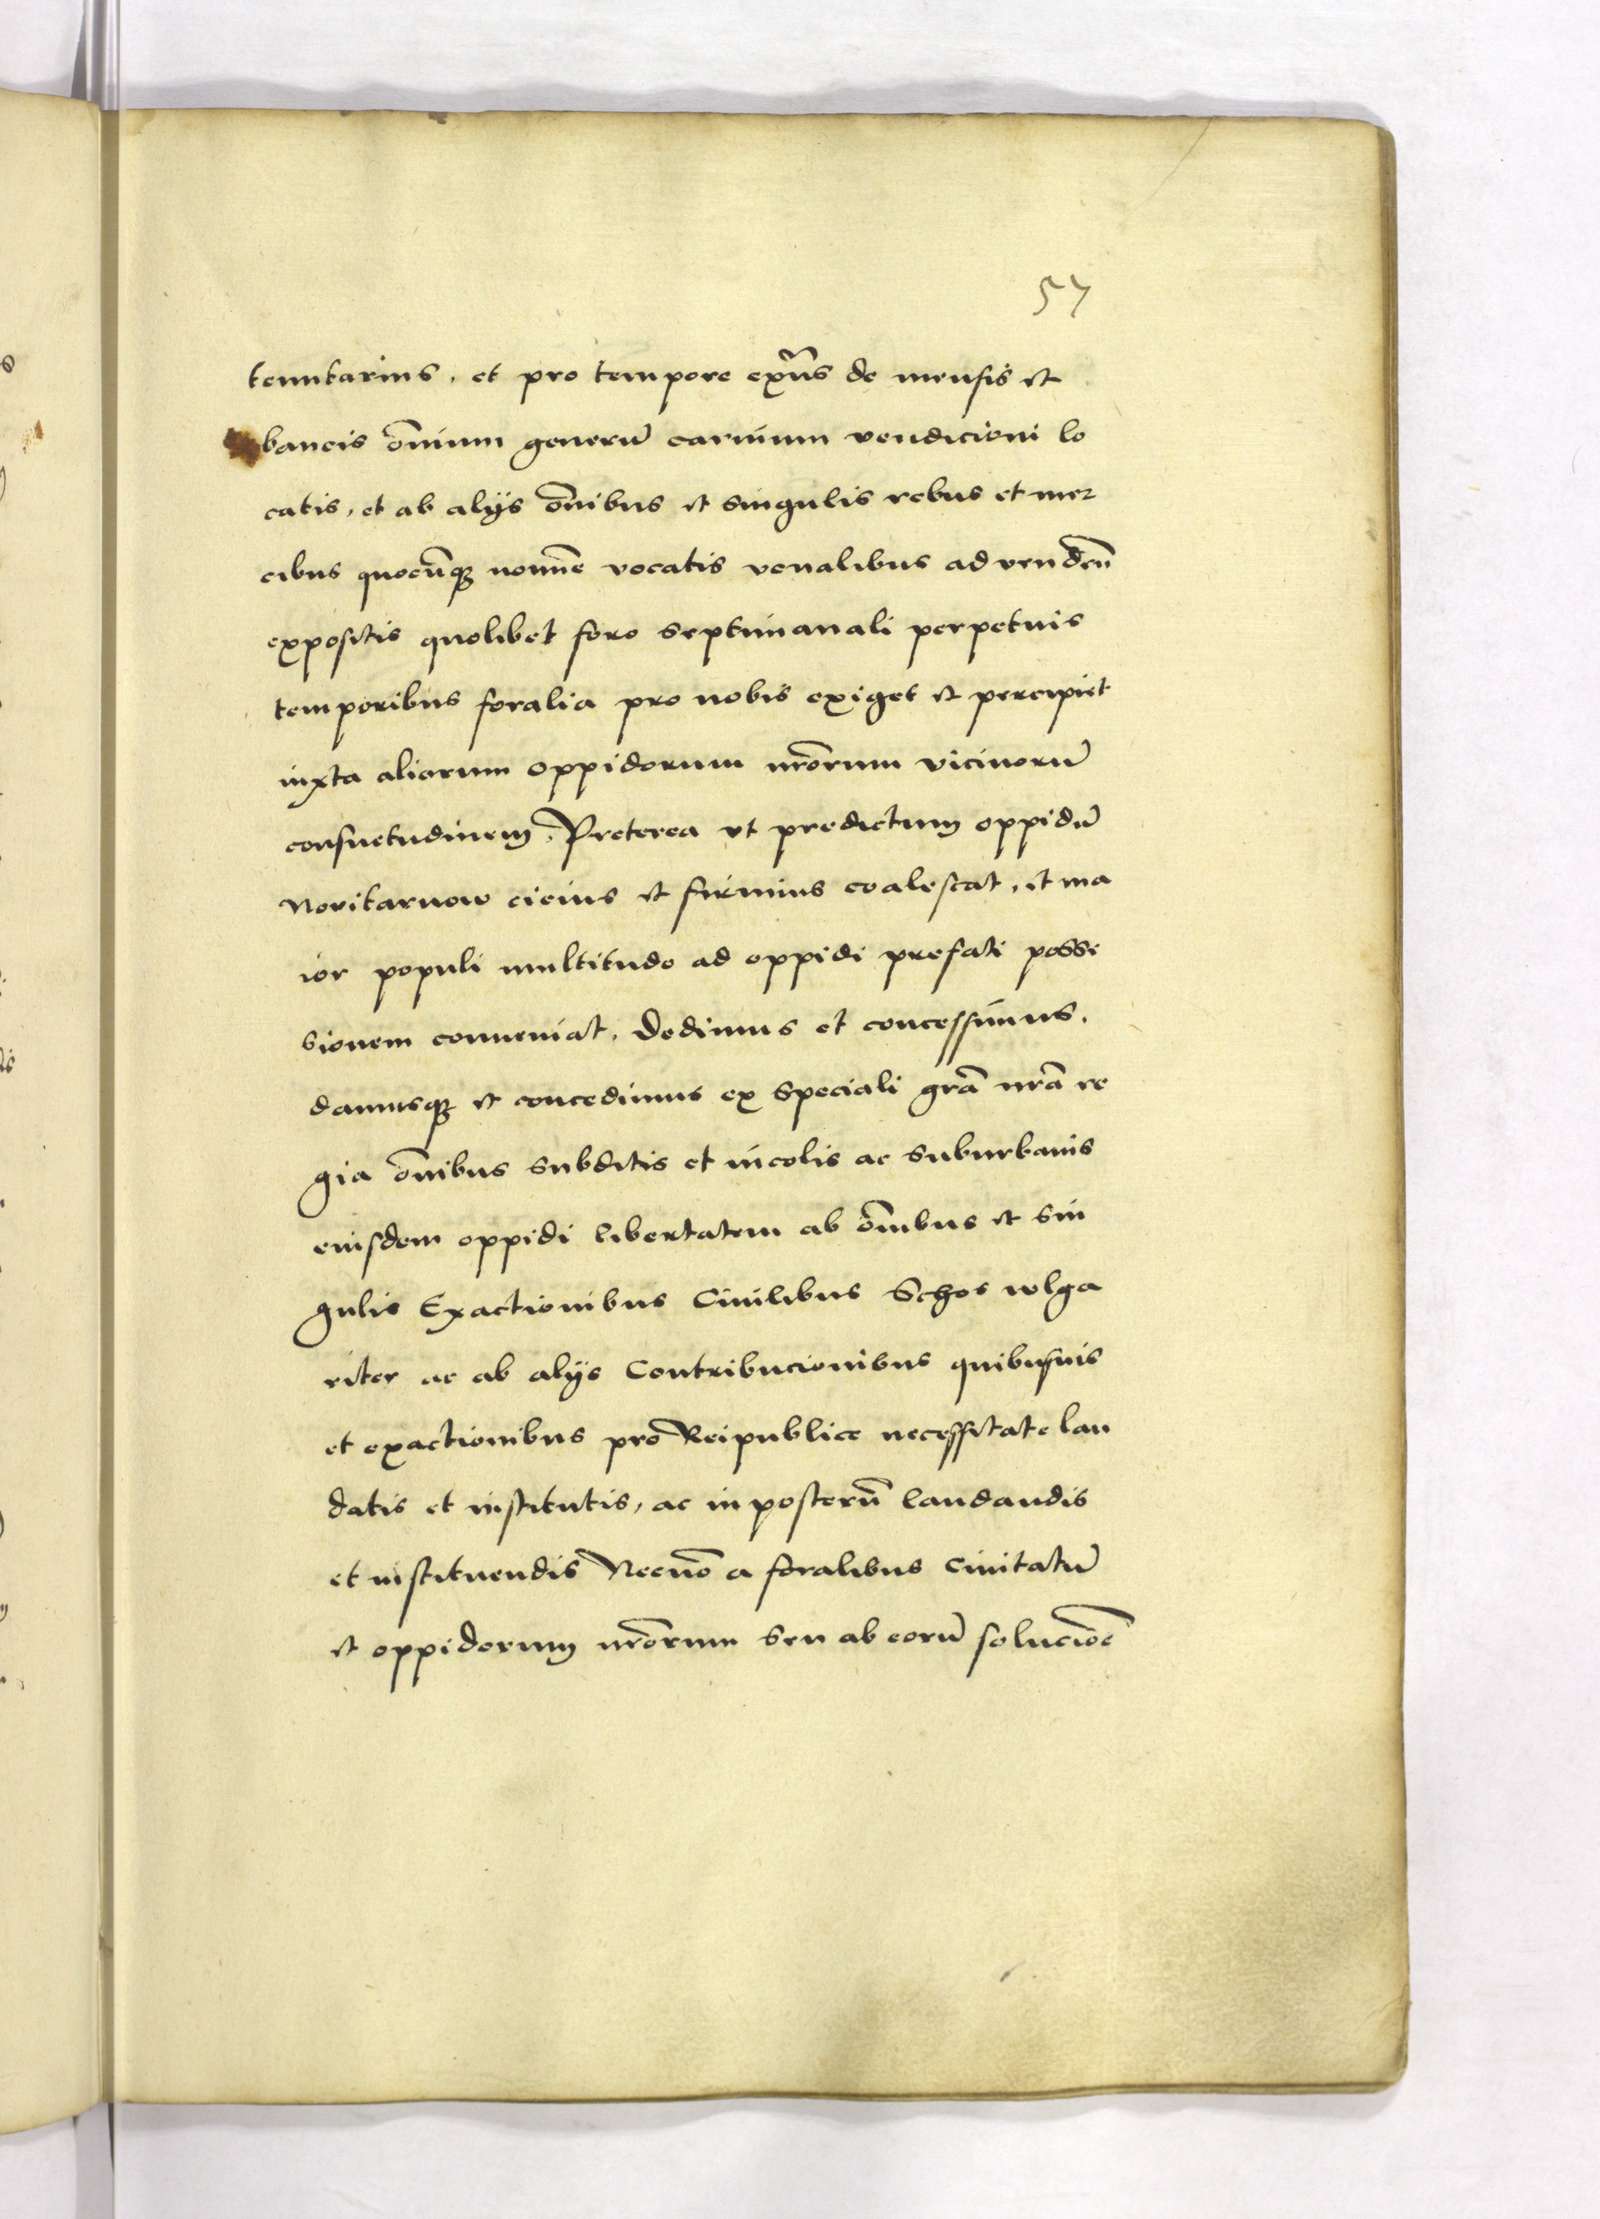 57
tenutarius, et pro tempore exñs de mensis et
bancis om̄ium generū carnium vendicioni lo
catis, et ab alijs om̄ibus et singulis rebus et mer
cibus quocūq; nomīe vocatis venalibus ad vendēn
expositis quolibet foro septimanali perpetuis
temporibus foralia pro nobis exiget et percipiet
iuxta aliorum oppidorum nr̄orum vicinorū
consuetudinem. Preterea vt predictum oppidū
cicius et firmius coalescat, et ma
ior populi multitudo ad oppidi prefati possi
sionem conueniat. Dedimus et concessimus.
damusq; et concedimus ex speciali gr̄a nr̄a re
gia om̄ibus subditis et incolis ac suburbanis
eiusdem oppidi libertatem ab om̄ibus et sin
gulis Exactionibus Ciuilibus Schos wlga
riter ac ab alijs Contribucionibus quibusuis
et exactionibus pro Reipublice necessitate lau
datis et institutis, ac in posterū laudandis
et instituendis Necnō a foralibus Ciuitatū
et oppidorum nr̄orum seu ab eorū soluciōe